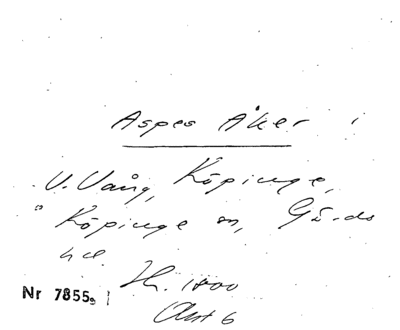 Aspes Åker
V. Vång, Köpinge,
Köpinge sn, Gärds
hd.
Sk. 1800
Akt 6
Nr 7855.